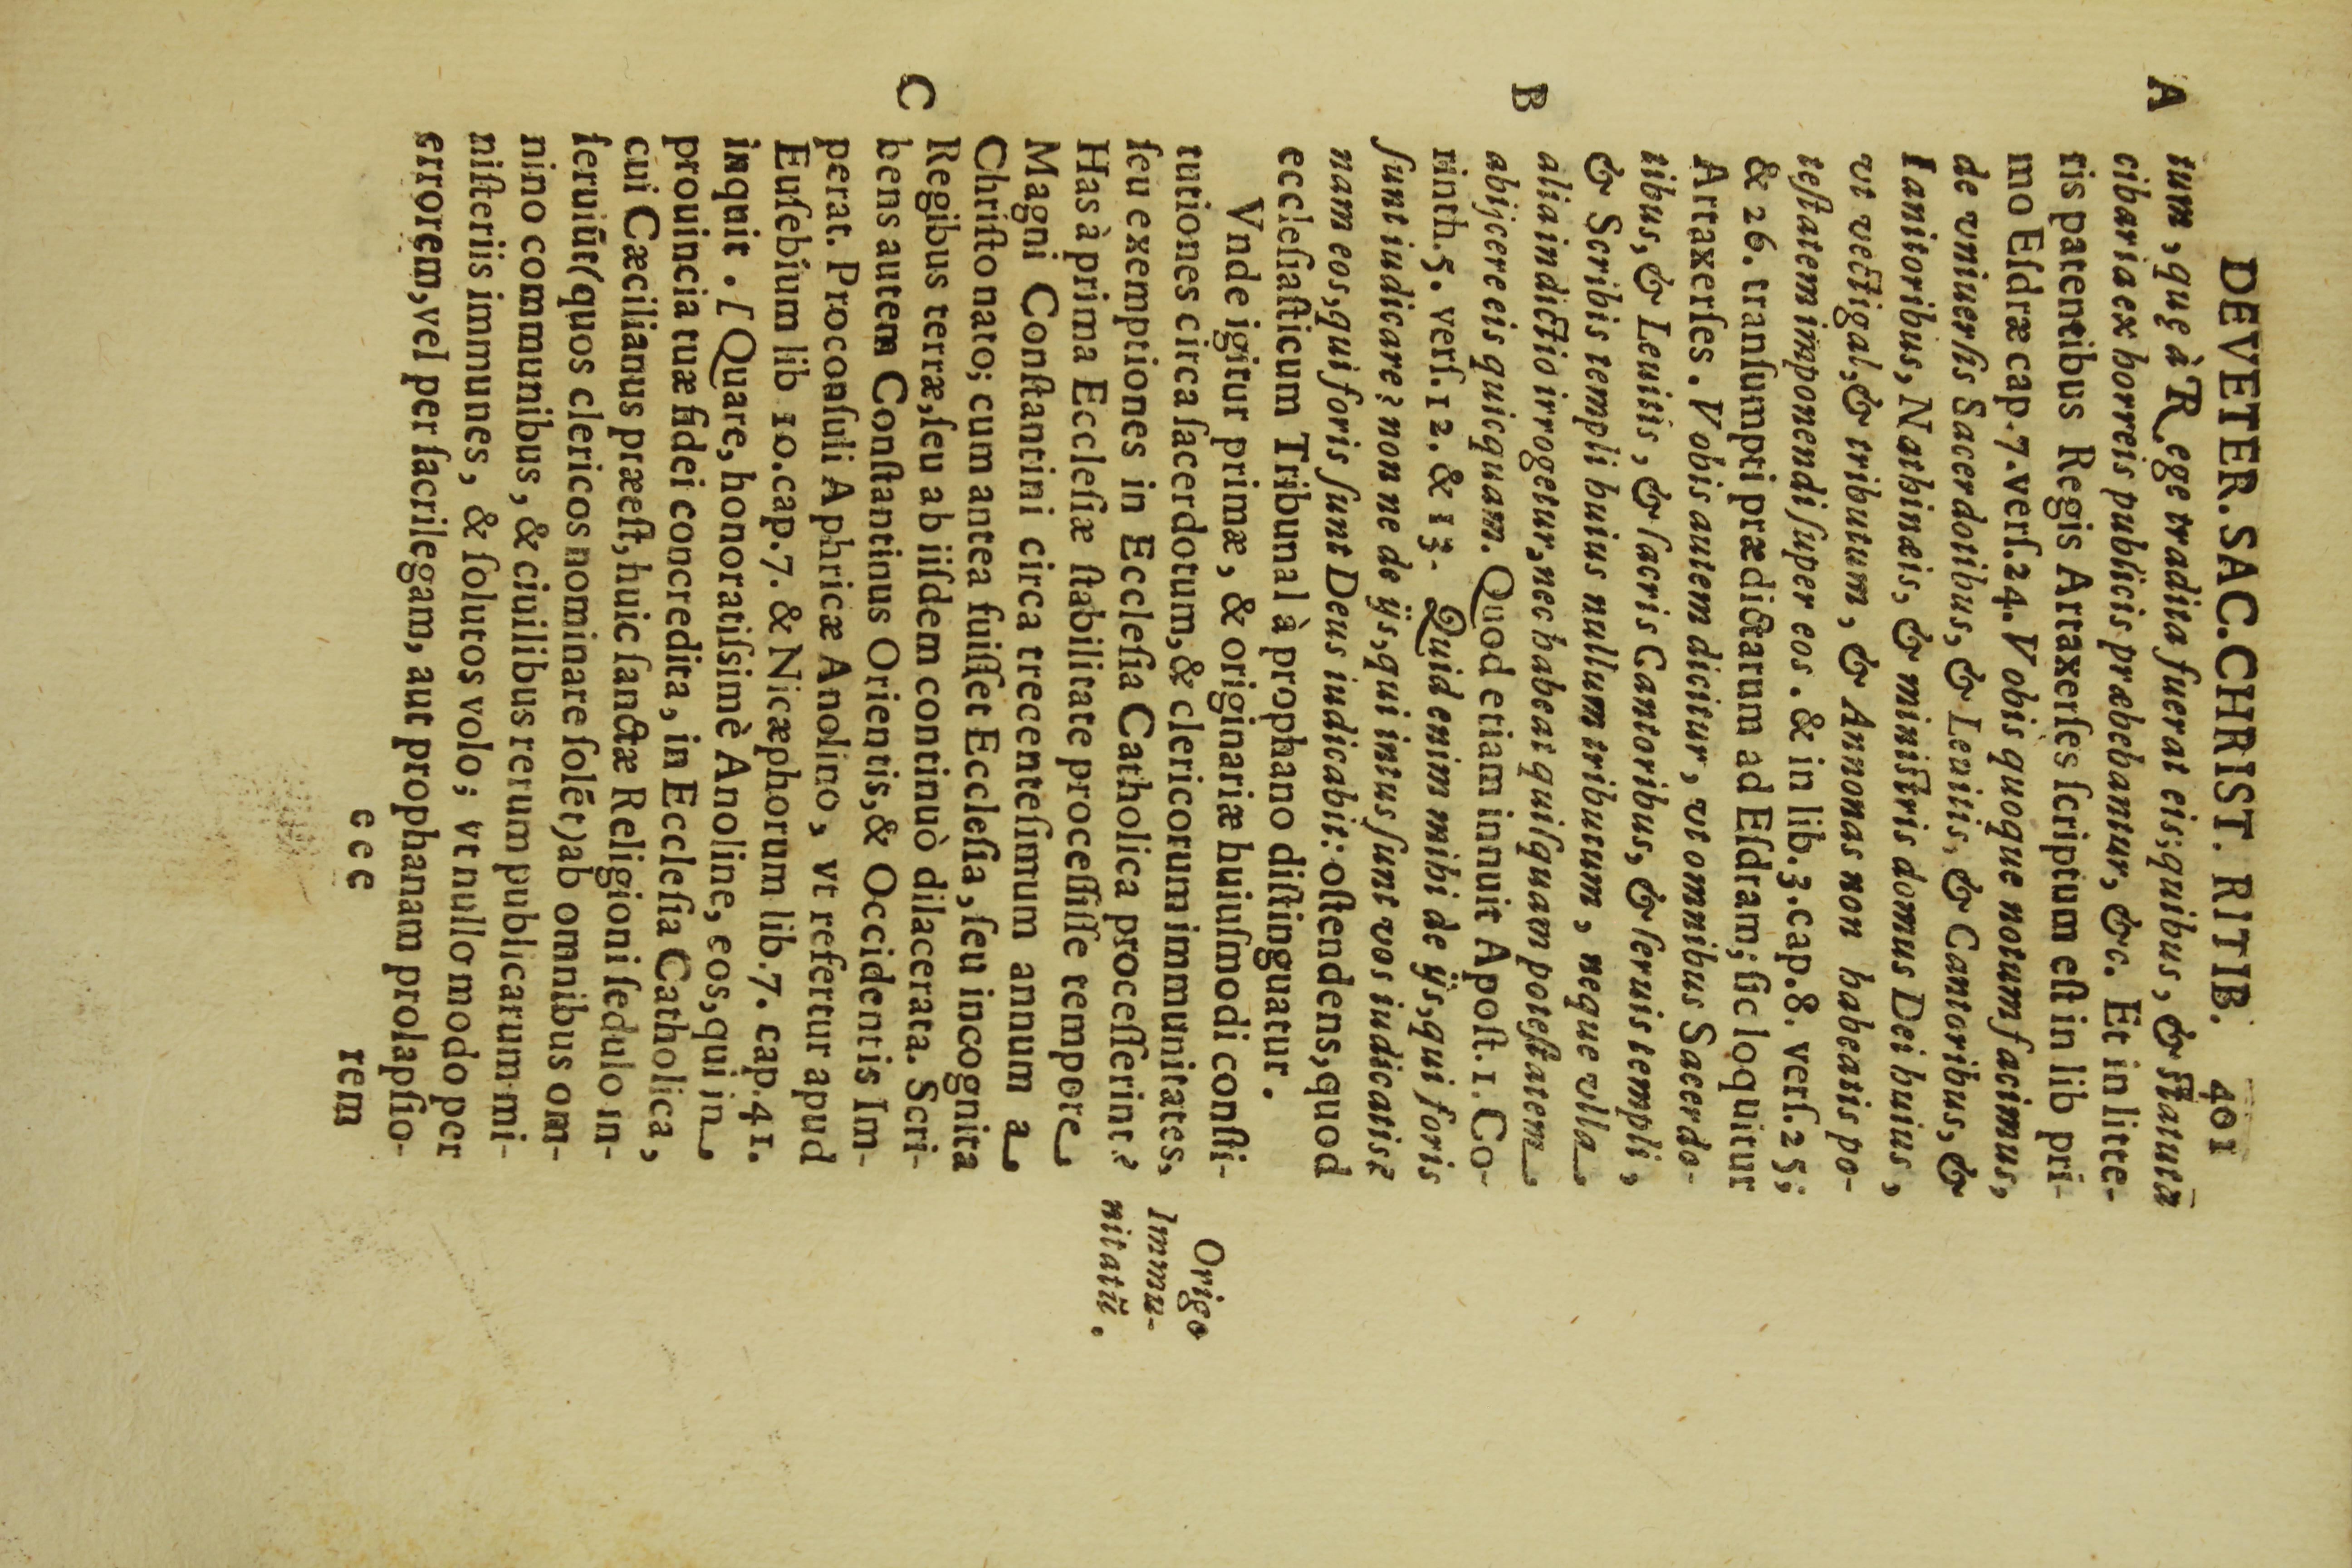 DE VETER. SAC. CHRIST. RITIB. 401
A tum, quę à Rege tradita fuerat eis; quibus, & statutā
cibaria ex horreis publicis præbebantur, &c. Et in litte-
ris patentibus Regis Artaxerſes ſcriptum eſt in lib pri-
mo Eſdræ cap. 7. verſ. 24. Vobis quoque notum facimus,
de vniuerſis Sacerdotibus, & Leuitis, & Cantoribus, &
Ianitoribus, Nathinæis, & ministris domus Dei huius,
vt vectigal, & tributum, & Annonas non habeatis po-
teſtatem imponendi ſuper eos. & in lib. 3. cap. 8. verſ. 25;
& 26. tranſumpti prædictarum ad Eſdram; ſic loquitur
Artaxerſes. Vobis autem dicitur, vt omnibus Sacerdo-
tibus, & Leuitis, & ſacris Cantoribus, & ſeruis templi,
& Scribis templi huius nullum tributum, neque vlla
B alia indictio irrogetur, nec habeat quiſquam poteſtatem
abijcere eis quicquam. Quod etiam innuit Apoſt. 1. Co-
rinth. 5. verſ. 12. & 13. Quid enim mihi de ijs, qui foris
ſunt iudicare? non ne de ijs, qui intus ſunt vos iudicatis?
nam eos, qui foris ſunt Deus iudicabit: oſtendens, quod
eccleſiaſticum Tribunal à prophano diſtinguatur.
Vnde igitur primæ, & originariæ huiuſmodi conſti-
tutiones circa ſacerdotum, & clericorum immunitates,
ſeu exemptiones in Eccleſia Catholica proceſſerint?
Has à prima Eccleſiæ ſtabilitate proceſſiſſe tempore
Magni Conſtantini circa trecenteſimum annum a
Chriſto nato; cum antea fuiſſet Eccleſia, ſeu incognita
Regibus terræ, ſeu ab iiſdem continuò dilacerata. Scri-
C bens autem Conſtantinus Orientis, & Occidentis Im-
perat. Proconſuli Aphricæ Anolino, vt refertur apud
Euſebium lib 10. cap. 7. & Nicæphorum lib. 7. cap. 41.
inquit. [Quare, honoratiſsimè Anoline, eos, qui in
prouincia tuæ fidei concredita, in Eccleſia Catholica,
cui Cæcilianus præeſt, huic ſanctæ Religioni ſedulo in-
ſeruiūt (quos clericos nominare ſolēt) ab omnibus om-
nino communibus, & ciuilibus rerum publicarum mi-
niſteriis immunes, & ſolutos volo; vt nullo modo per
errorem, vel per ſacrilegam, aut prophanam prolapſio-
e e e rem
Origo
Immu-
nitatū.